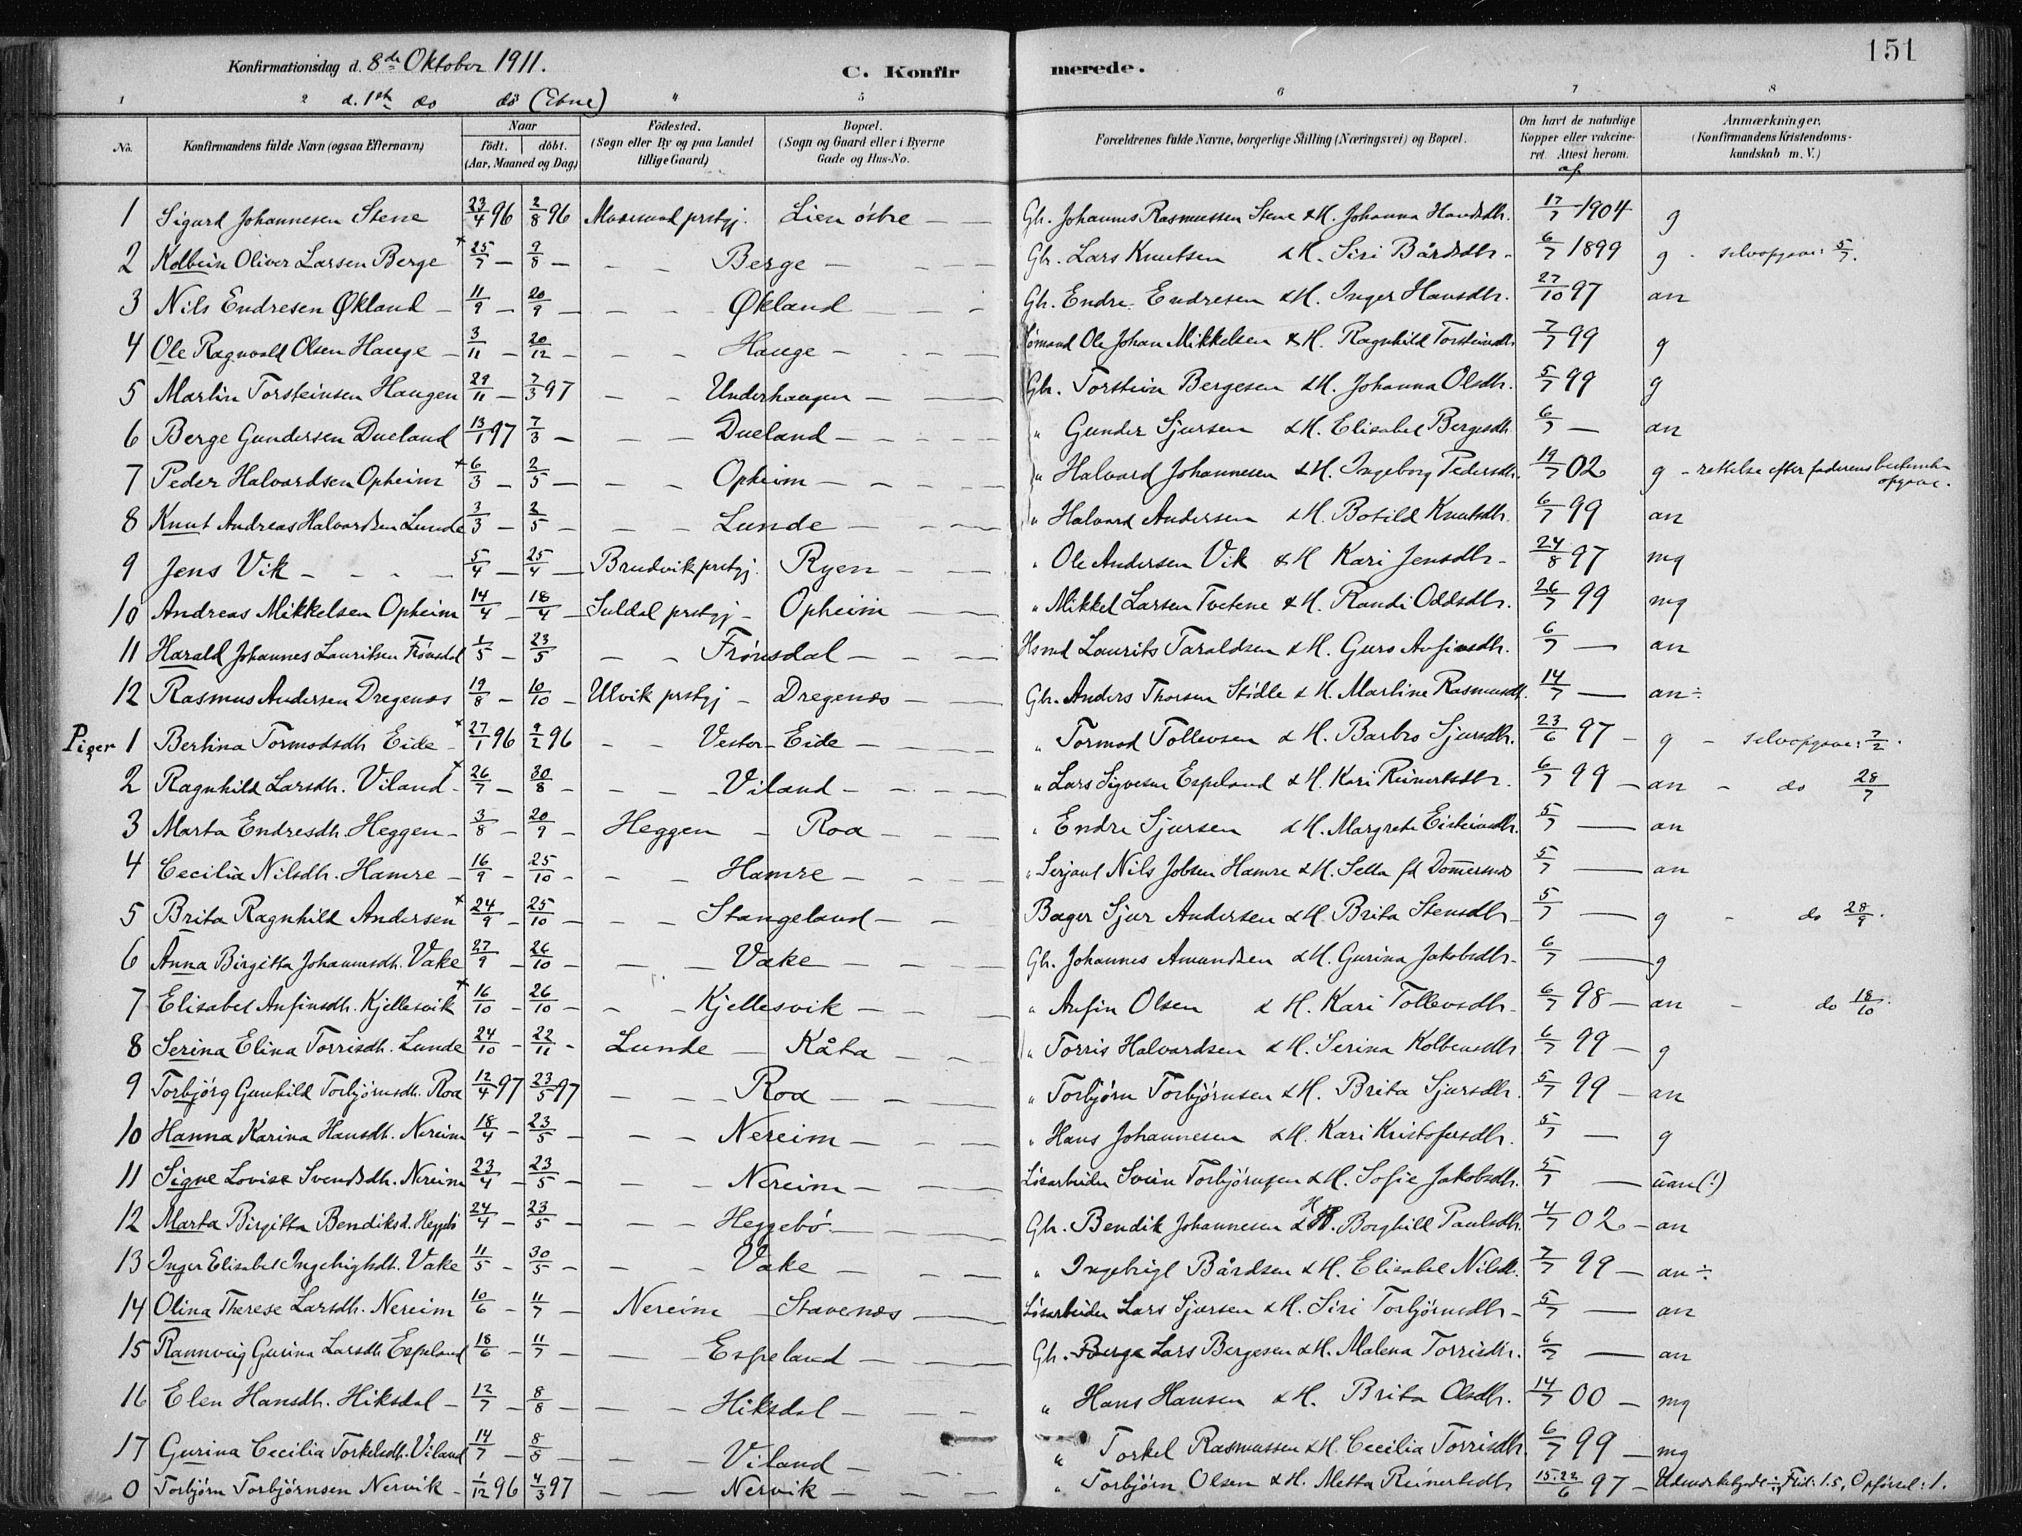 151
Konfirmationsdag d. 8de Oktober 1911.
C. Konfir merede.
d. 1st do do (Etne)
1 2 5 6 7 8
No.
Konfirmandens fulde Navn (ogsaa Efternavn)
Naar
födt. döbt.
(Aar, Maaned og Dag)
Födested.
(Sogn eller By og paa Landet tillige Gaard)
Bopæl.
(Sogn og Gaard eller i Byerne Gade og Hus-No.
Forældrenes fulde Navne, borgerlige Stilling (Næringsvei) og Bopæl.
Om havt de naturlige Kopper eller vakcineret. Attest herom.
Anmærkninger.
(Konfirmandens Kristendomskundskab m. V.)
af
1 Sigurd Johannesen Stene 23/4 96 2/8 96 prstgj. Lien østre — — Gbr. Johannes Rasmussen Stene & H. Johanna 17/7 1904 g
2 Kolbein Oliver Larsen Berge × 25/7 — 9/8 — — — Berge — — — Gbr. Lars Knutsen & H. Siri Bårdsdtr. 6/7 1899 g - selvopgave: 5/7.
3 Nils Endresen Økland — 11/9 — 20/9 — — — Økland — — — Gbr. Endre Endresen & H. Inger Hansdtr. 27/10 97 an
4 Ole Ragnvald Olsen Hauge — 3/11 — 20/12 — — — Hauge — — — Sømand Ole Johan Mikkelsen & H. Ragnhild Torsteinsdtr. 7/7 99 g
5 Martin Torsteinsen Haugen 29/11 — 7/3 97 — — Underhaugen — — Gbr. Torstein Bergesen & H. Johanna Olsdtr. 5/7 99 g
6 Berge Gundersen Dueland 13/1 97 7/3 — — — Dueland — — — " Gunder Sjursen & H. Elisabet Bergesdtr. 6/7 — an
7 Peder Halvardsen Opheim × 6/3 — 2/5 — — — Opheim — — — " Halvard Johannesen & H. Ingeborg Pedersdtr. 19/7 02 g - rettelse efter faderens bestemte opgave.
8 Knut Andreas Halvardsen Lunde 3/3 — 2/5 — — — Lunde — — — " Halvard Andersen & H. Botild Knutsdtr. 6/7 99 an
9 Jens Vik — — — 5/4 — 25/4 — Brudvik prstgj. Ryen — — " Ole Andersen Vik & H Kari Jensdtr. 24/8 97 mg
10 Andreas Mikkelsen Opheim 14/4 — 18/4 — Suldal prstgj — Opheim — — " Mikkel Larsen Tvetene & H. Randi Oddsdtr. 26/7 99 mg
11 Harald Johannes Lauritsen Frønsdal 1/5 — 23/5 — — Frønsdal — — — Hsmd Laurits Taraldsen & H. Guro Anfinsdtr. 6/7 — an
12 Rasmus Andersen Dregenæs 19/8 — 10/10 — Ulvik prstgj — Dregenæs — — Gbr. Anders Thorsen Stödle & H. Martine Rasmusdtr. 14/7 — an÷
Piger 1 Bertina Tormodsdtr Eide × 27/1 96 9/2 96 — — Vestor-Eide — — — " Tormod Tollevsen & H. Barbro Sjursdtr. 23/6 97 — g — selvopgave: 7/2.
2 Ragnhild Larsdtr. Viland × 26/7 — 30/8 — — — Viland — — — " Lars Sigvesen Espeland & H. Kari Reinertsdtr. 6/7 99 — an — do 28/7
3 Marta Endresdtr. Heggen — 3/8 — 20/9 — Heggen — Roa — — — " Endre Sjursen & H. Margrete Eisteinsdtr. 5/7 — an
4 Cecilia Nilsdtr. Hamre — 16/9 — 25/10 — — — Hamre — — — " Serjant Nils Jobsen Hamre & H. Setta fd Domersnes 5/7 — an
5 Brita Ragnhild Andersen × 24/9 — 25/10 — — — Stangeland — — Bager Sjur Andersen & H. Brita Stensdtr. 5/7 — g — do 28/9.
6 Anna Birgitta Johannesdtr. Vake 27/9 — 26/10 — — — Vake — — — Gbr. Johannes Amundsen & H. Gurina Jakobsdtr. 6/7 — g
7 Elisabet Anfinsdtr. Kjellesvik × 16/10 — 26/10 — — — Kjellesvik — — — " Anfin Olsen & H. Kari Tollevsdtr. 6/7 98 — an — do 18/10.
8 Serina Elina Torrisdtr. Lunde 24/10 — 22/11 — Lunde — Kåta — — " Torris Halvardsen & H. Serina Kolbensdtr. 6/7 99 — g
9 Torbjørg Gunhild Torbjørnsdtr. Roa 12/4 97 23/5 97 — — Roa — — — " Torbjørn Torbjørnsen & H. Brita Sjursdtr. 5/7 99 — an
10 Hanna Karina Hansdtr. Nereim 18/4 — 23/5 — — — Nereim — — — " Hans Johannesen & H. Kari Kristofersdtr. 5/7 — g
11 Signe Lovise Svendsdtr. Nereim 23/4 — 23/5 — — — Nereim — — — Løsarbeider Svein Torbjørnsen & H. Sofie Jakobsdtr. 5/7 — uan(!)
12 Marta Birgitta Bendiksd. Heggebö 24/4 — 23/5 — — — Heggebö — — — Gbr. Bendik Johannesen & H. Borghild Paulsdtr. 4/7 02 — an
13 Inger Elisabet Ingebrigtsdtr. Vake 11/5 — 30/5 — — — Vake — — — " Ingebrigt Bårdsen & H. Elisabet Nilsdtr. 7/7 99 — an÷
14 Olina Therese Larsdtr. Nereim 10/6 — 11/7 — Nereim — Stavenæs — Løsarbeider Lars Sjursen & H. Siri Torbjørnsdtr. 5/7 — an
15 Rannveig Gurina Larsdtr Espeland 18/6 — 11/7 — — — Espeland — — — Gbr. Berge Lars Bergesen & H. Malena Torrisdtr. 6/7 — an
16 Elen Hansdtr. Hiksdal — 12/7 — 8/8 — — — Hiksdal — — — " Hans Hansen & H. Brita Olsdtr. 14/7 00 — mg
17 Gurina Cecilia Torkelsdtr. Viland 14/7 — 8/8 — — — Viland — — — " Torkel Rasmussen & H. Cecilia Torrisdtr. 6/7 99 — mg
0 Torbjørn Torbjørnsen Nervik — 1/12 96 4/3 97 — — Nervik — — — " Torbjørn Olsen & H. Metta Reinertsdtr 15.22/6 97 — Flid: 1.5, Opførsel: 1.